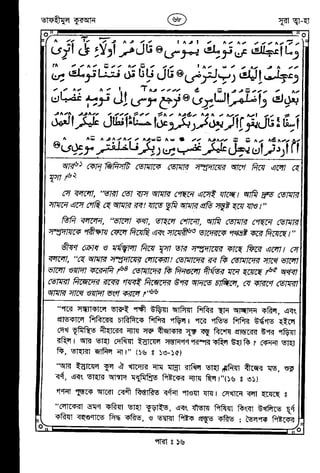 তাফহীমুল কুরআন
৬৮
সূরা ত্বা-হা
وَمَآ أَعْجَلَكَ عَنْ قَوْمِكَ يٰمُوسٰى ۝ قَالَ هُمْ أُولَآءِ عَلٰٓى أَثَرِى
وَعَجِلْتُ إِلَيْكَ رَبِّ لِتَرْضٰى ۝ قَالَ فَإِنَّا قَدْ فَتَنَّا قَوْمَكَ مِنْ
بَعْدِكَ وَأَضَلَّهُمُ السَّامِرِىُّ ۝ فَرَجَعَ مُوسٰٓى إِلٰى قَوْمِهٖ غَضْبَانَ
أَسِفًا ۚ قَالَ يٰقَوْمِ أَلَمْ يَعِدْكُمْ رَبُّكُمْ وَعْدًا حَسَنًا ۚ أَفَطَالَ عَلَيْكُمُ الْعَهْدُ
أَمْ أَرَدْتُمْ أَنْ يَحِلَّ عَلَيْكُمْ غَضَبٌ مِّنْ رَّبِّكُمْ فَأَخْلَفْتُمْ مَّوْعِدِى ۝
আর কোন্ জিনিসটি তোমাকে তোমার সম্প্রদায়ের আগে নিয়ে এলো হে
মূসা?
সে বললো, “তারা তো ব্যস আমার পেছনে এসেই যাচ্ছে। আমি দ্রুত তোমার
সামনে এসে গেছি হে আমার রব! যাতে তুমি আমার প্রতি সন্তুষ্ট হয়ে যাও।”
তিনি বললেন, “ভালো কথা, তাহলে শোনো, আমি তোমার পেছনে তোমার
সম্প্রদায়কে পরীক্ষায় ফেলে দিয়েছি এবং সামেরী তাদেরকে পথভ্রষ্ট করে দিয়েছে।”
ভীষণ ক্রোধ ও মর্মজ্বালা নিয়ে মূসা তার সম্প্রদায়ের কাছে ফিরে এলো। সে
বললো, “হে আমার সম্প্রদায়ের লোকেরা! তোমাদের রব কি তোমাদের সাথে ভালো
ভালো ওয়াদা করেননি? তোমাদের কি দিনগুলো দীর্ঘতর মনে হয়েছে? অথবা
তোমরা নিজেদের রবের গযবই নিজেদের উপর আনতে চাচ্ছিলে, যে কারণে তোমরা
আমার সাথে ওয়াদা ভংগ করলে?”
“পরে সন্ধ্যাকালে ভারুই পক্ষী উড়িয়া আসিয়া শিবির স্থান আচ্ছাদন করিল, এবং
প্রাতঃকালে শিবিরের চারিদিকে শিশির পড়িল। পরে পতিত শিশির উর্ধ্বগত হইলে
দেখ ভূমিস্থিত নীহারের ন্যায় সরু বীজাকার সূক্ষ্ম বস্তু বিশেষ প্রান্তরের উপর পড়িয়া
রহিল। আর তাহা দেখিয়া ইস্রায়েল সন্তানগণ পরস্পর কহিল উহা কি? কেননা তাহা
কি, তাহারা জানিল না।” (১৬ ঃ ১৩-১৫)
“আর ইস্রায়েল কুল ঐ খাদ্যের নাম মান্না রাখিল তাহা ধনিয়া বীজের মত, শুক্ল
বর্ণ, এবং তাহার আস্বাদ মধুমিশ্রিত পিষ্টকের ন্যায় ছিল।” (১৬ ঃ ৩১)
গণনা পুস্তকে আরো বেশী বিস্তারিত বর্ণনা পাওয়া যায়। সেখানে বলা হয়েছে ঃ
“লোকেরা ভ্রমণ করিয়া তাহা কুড়াইত, এবং যাঁতায় পিষিয়া কিংবা উখলিতে চূর্ণ
করিয়া বহুগুণাতে সিদ্ধ করিত, ও তদ্বারা পিষ্টক প্রস্তুত করিত ; তৈলপক্ক পিষ্টকের
পারা ঃ ১৬